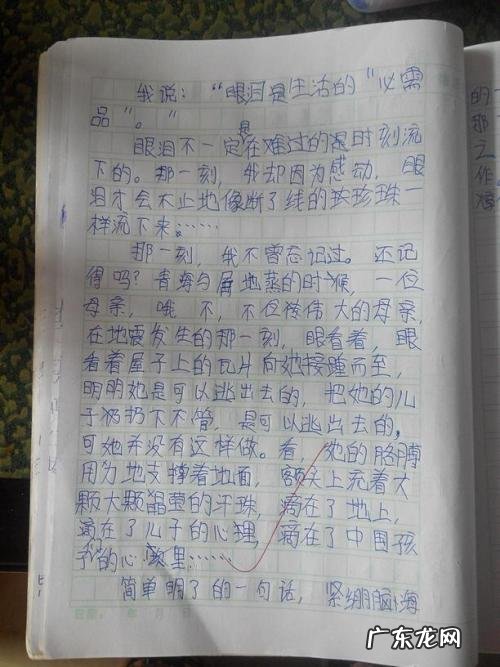 我说：“眼泪是生活的“必需
品”。”
眼泪不一定是在难过的时刻流
下的。那一刻，我却因为感动，眼
泪才会不止地像断了线的珍珠一
样流下来……
那一刻，我不曾忘记过。还记
得吗？青海的时候，一位
母亲，哦不，不位伟大的母亲，
在地震发生的那一刻，眼看着，眼
看着屋子上的瓦片向她接踵而至，
明明她是可以逃出去的，把她的儿
子扔下不管，是可以逃出去的，
可她并没有这样做。看，她的胳膊
用力地支撑着地面，额头上充着大
颗大颗晶莹的汗珠，滴在了地上，
滴在了儿子的心理，滴在了中国孩
子的心里……
简单明了的一句话，紧绷脑海
的
那
之
作
广东龙网